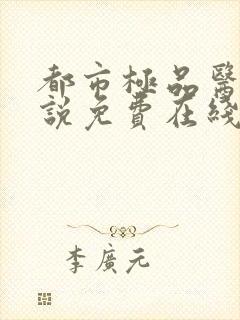 都市極品醫
說免費在綫
李廣元